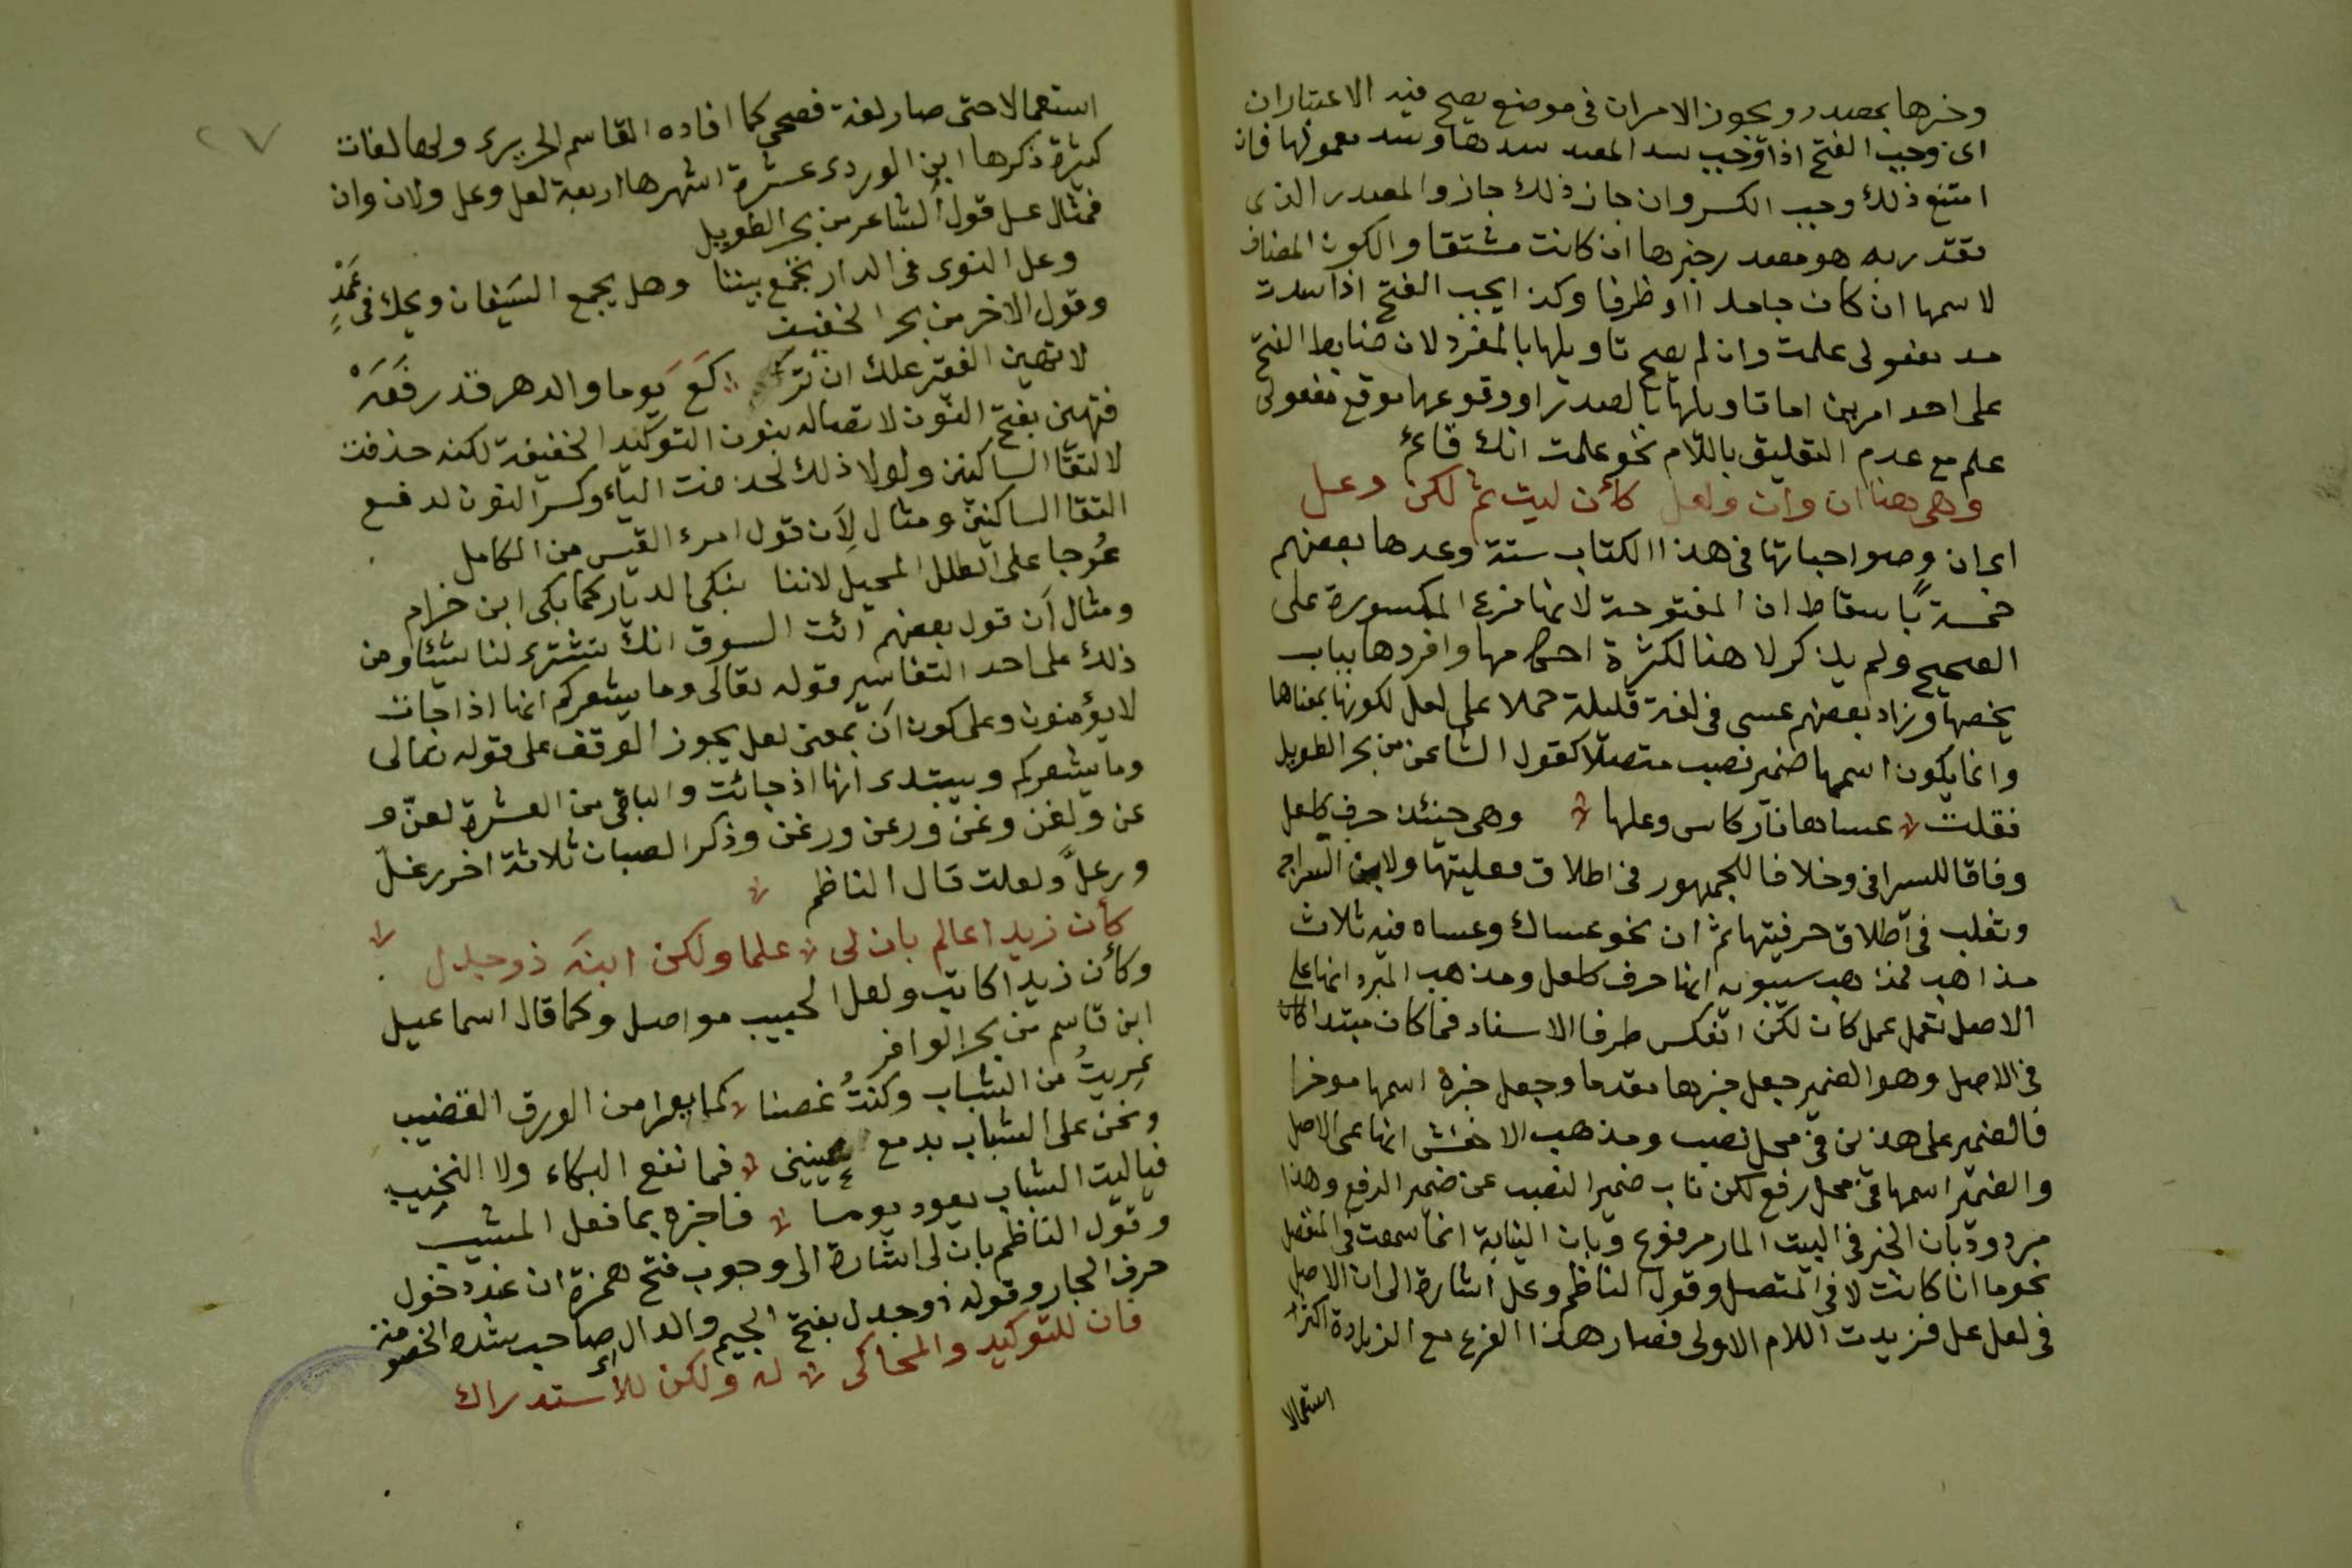 وخبرها بمصدر ويجوز الامران فى موضع يصح فيه الاعتباران
اى وجب الفتح اذا وجب سد المصدر مسدها ومسد معمولها فان
امتنع ذلك وجب الكسر وان جاز ذلك جاز والمصدر الذى
تقدر به هو مصدر خبرها ان كانت مشتقا والكون المضاف
لاسمها ان كان جامدا او ظرفا وكذا يجب الفتح اذا سدت
مسد مفعولى علمت وان لم يصح تاويلها بالمفرد لان ضابط الفتح
على احد امرين اما تاويلها بالمصدر او وقوعها موقع مفعولى
علم مع عدم التعليق باللام نحو علمت انك قائم
وهى هنا ان وان ولعل كأن ليت ثم لكن وعل
اى ان وصواحباتها فى هذا الكتاب ستة وعدها بعضهم
خمسة باسقاط ان المفتوحة لانها فرع المكسورة على
الصحيح ولم يذكر لا هنا لكثرة احكامها وافردها بباب
يخصها وزاد بعضهم عسى فى لغة قليلة حملا على لعل لكونها بمعناها
وانما يكون اسمها ضمير نصب متصلا كقول الشاعر من بحر الطويل
فقلت عساها نار كاس وعلها وهى حينئذ حرف كلعل
وفاقا للسيرافى وخلافا للجمهور فى اطلاق فعليتها ولابن السراج
وثعلب فى اطلاق حرفيتها ثم ان نحو عساك وعساه فيه ثلاث
مذاهب فمذهب سيبويه انها حرف كلعل ومذهب المبرد انها على
الاصل تعمل عمل كان لكن انعكس طرفا الاسناد فما كان مبتدا كان
فى الاصل وهو الضمير جعل خبرها مقدما وجعل خبره اسمها موخرا
فالضمير على هذين فى محل نصب ومذهب الاخفش انها على الاصل
والضمير اسمها فى محل رفع لكن ناب ضمير النصب عن ضمير الرفع وهذا
مردود بان الخبر فى البيت المار مرفوع وبان النيابة انما سمعت فى المنفصل
نحو ما انا كانت لا فى المتصل وقول الناظم وعل اشارة الى ان الاصل
فى لعل عل فزيدت اللام الاولى فصار هذا الفرع مع الزيادة اكثر
استعمالا
استعمالا حتى صار لغة فصحى كما افاده القاسم الحريرى ولها لغات
كثيرة ذكرها ابن الوردى عشرة اشهرها اربعة لعل وعل ولان وان
فمثال عل قول الشاعر من بحر الطويل
وعل النوى فى الدار تجمع بيننا وهل يجمع السيفان ويحك فى غمد
وقول الاخر من بحر الخفيف
لا تهين الفقير علك ان تر كع يوما والدهر قد رفعه
فتهين بفتح النون لاتصاله بنون التوكيد الخفيفة لكنه حذفت
لالتقا الساكنين ولولا ذلك لحذفت الياء وكسر النون لدفع
التقا الساكنين ومثال لأن قول امرء القيس من الكامل
عوجا على الطلل المحيل لاننا نبكى الديار كما بكى ابن خزام
ومثال أن قول بعضهم ائت السوق انك تشترى لنا شيئا ومن
ذلك على احد التفاسير قوله تعالى وما يشعركم انها اذا جات
لا يؤمنون وعلى كون ان بمعنى لعل يجوز الوقف على قوله تعالى
وما يشعركم ويبتدى انها اذ جائت والباقى من العشرة لعن و
عن ولغن وغن ورعن ورغن وذكر الصبان ثلاثة اخر رغل
ورعل ولعلت قال الناظم
كأن زيدا عالم بان لى علما ولكن ابنه ذو جدل
وكأن زيدا كاتب ولعل الحبيب مواصل وكما قال اسماعيل
ابن قاسم من بحر الوافر
عريت من الشباب وكنت غصنا كما يعرا من الورق القضيب
ونحن على الشباب بدمع عينى فما نفع البكاء ولا النحيب
فياليت الشباب يعود يوما فاخبره بما فعل المشيب
وقول الناظم بان لى اشارة الى وجوب فتح همزة ان عند دخول
حرف الجار وقوله ذو جدل بفتح الجيم والدال اى صاحب شدة الخصومة
فان للتوكيد والمحاكى له ولكن للاستدراك